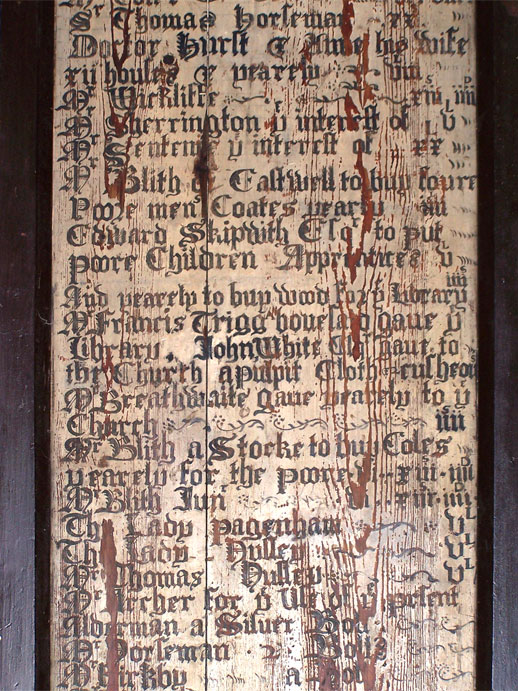 Sr Thomas Horseman xx
Doctor Hurst & Anne his wife
xij houses & yearely viij
Mr Wickliffe xiij iiij
Mr Sherrington ye interest of v
Mr Sentens ye interest of xx
Mr Blith of Eastwell to buy foure
Poore men Coates yearly iiij
Edward Skipwith Esqr to put
poore Children Apprintices v
And yearely to buy wood for ye Library iiij
Mr Francis Trigg house & gaue ye
Library. John White Cler gaue to
the Church a pulpit Cloth & cusheon
Mr Breathwaite gaue yearely to ye
Church iiij
Mr Blith a Stocke to buy Coles
yearely for the poore xiij iiij
Mr Blith Junr xiij iiij
The Lady Pagenham v
The Lady Hussey v
Mr Thomas Hussey v
Mr Archer for ye use of ye present
Alderman a Silver Boll
Mr Horseman 2 Bolls
Mr Kirkby a Boll